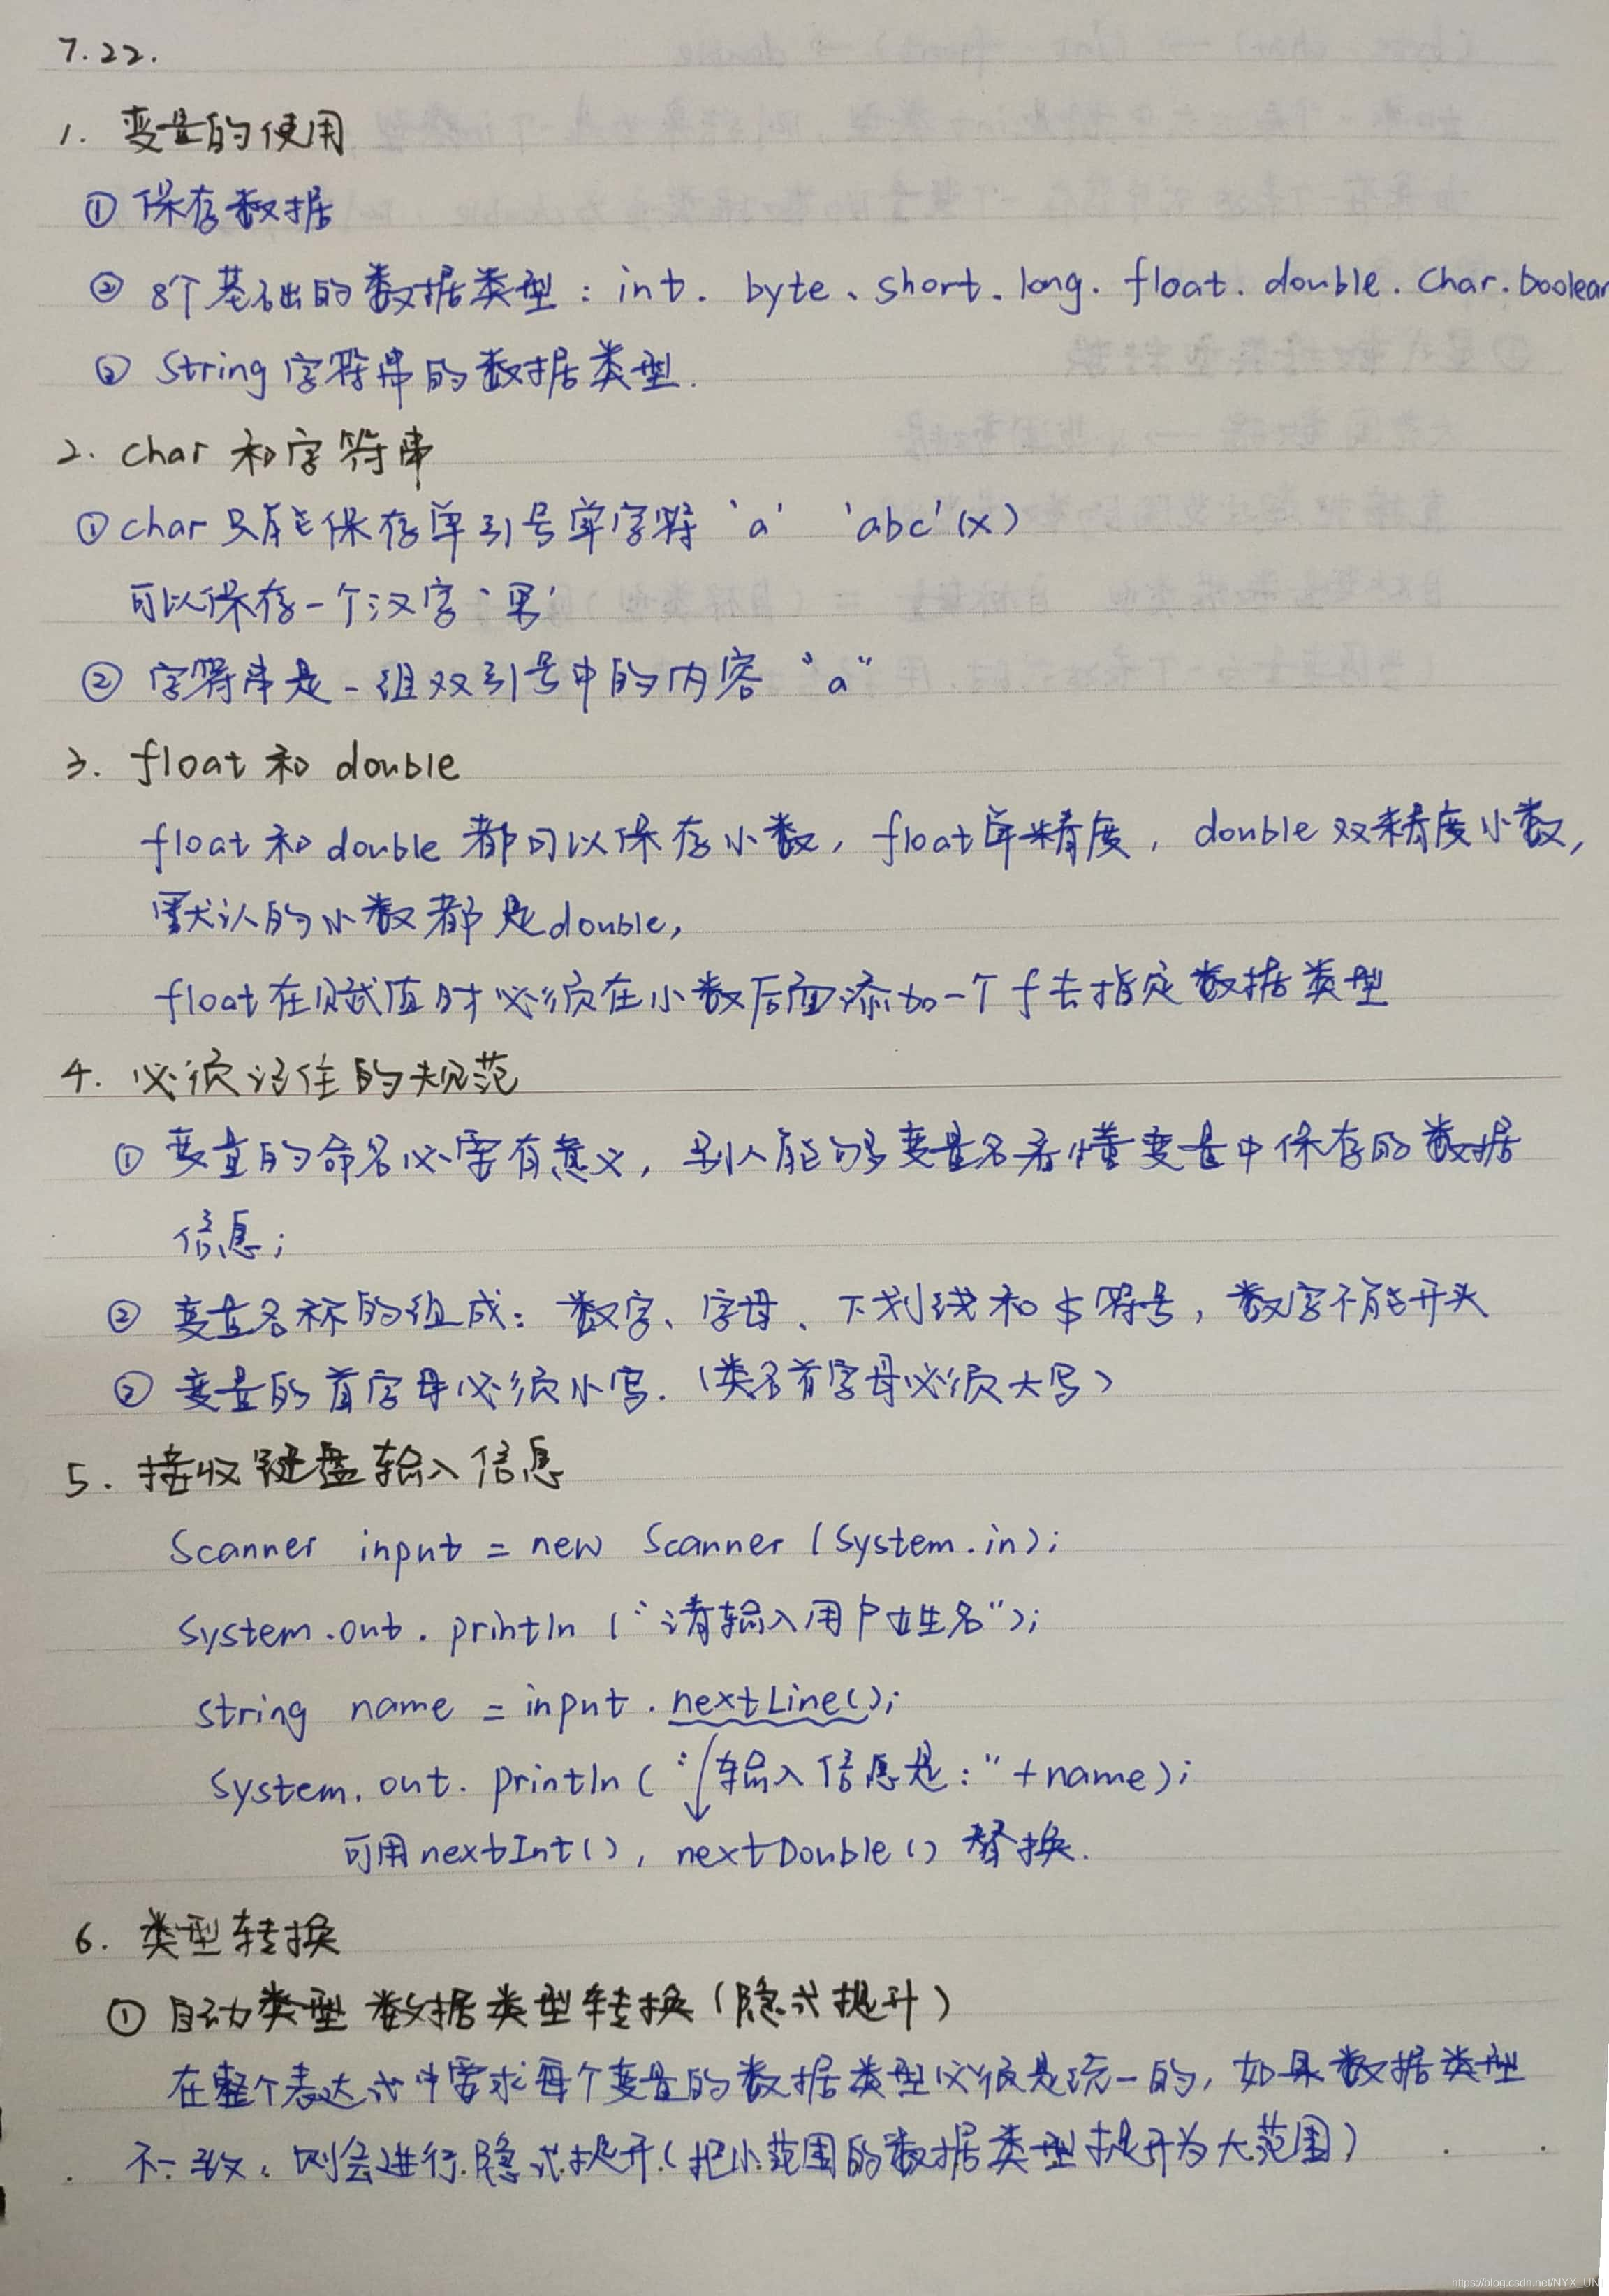 7.22.
1. 变量的使用
① 保存数据
② 8个基础的数据类型：int. byte、short. long. float. double. Char. boolean
③ String 字符串的数据类型.
2. char 和字符串
① char 只能保存单引号单字符 'a' 'abc'(x)
可以保存一个汉字'男'
② 字符串是一组双引号中的内容 "a"
3. float 和 double
float 和 double 都可以保存小数，float单精度，double 双精度小数，
默认的小数都是double，
float在赋值时必须在小数后面添加一个 f 去指定数据类型
4. 必须记住的规范
① 变量的命名必需有意义，别人能够变量名看懂变量中保存的数据
信息；
② 变量名称的组成：数字、字母、下划线和$符号，数字不能开头
③ 变量的首字母必须小写.（类名首字母必须大写）
5. 接收键盘输入信息
Scanner input = new Scanner (System.in);
System.out.println ("请输入用户姓名");
String name = input.nextLine();
System.out.println ("输入信息是："+name);
可用nextInt(), nextDouble() 替换.
6. 类型转换
① 自动类型 数据类型转换（隐式提升）
在整个表达式中需求每个变量的数据类型必须是统一的，如果数据类型
不一致，则会进行隐式提升（把小范围的数据类型提升为大范围）
https://blog.csdn.net/NYX_UN